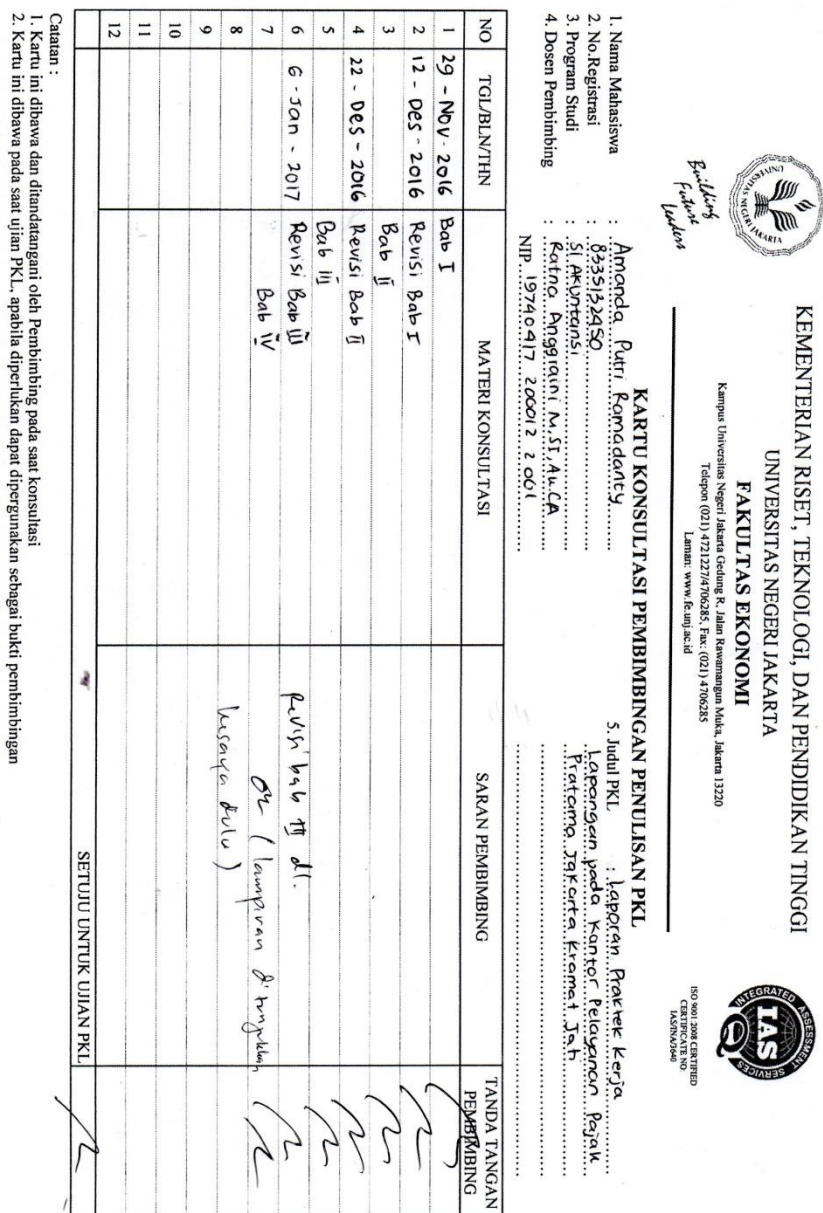 KEMENTERIAN RISET, TEKNOLOGI, DAN PENDIDIKAN TINGGI
UNIVERSITAS NEGERI JAKARTA
FAKULTAS EKONOMI
Kampus Universitas Negeri Jakarta Gedung R, Jalan Rawamangun Muka, Jakarta 13220
Telepon (021) 4721227/4706285, Fax: (021) 4706285
Laman: www.fe.unj.ac.id
UNIVERSITAS NEGERI JAKARTA
Building
Future
Leaders
INTEGRATED ASSESSMENT SERVICES
IAS
ISO 9001:2008 CERTIFIED
CERTIFICATE NO:
IAS/INA/3640
KARTU KONSULTASI PEMBIMBINGAN PENULISAN PKL
1. Nama Mahasiswa : Amanda Putri Ramadanty
2. No.Registrasi : 8335132450
3. Program Studi : S1 Akuntansi
4. Dosen Pembimbing : Ratna Anggraini M,SI,Au.CA
NIP. 19740417 200012 2 001
5. Judul PKL : Laporan Praktek Kerja
Lapangan pada Kantor Pelayanan Pajak
Pratama Jakarta Kramat Jati
NO TGL/BLN/THN MATERI KONSULTASI SARAN PEMBIMBING TANDA TANGAN PEMBIMBING
1 29 - Nov - 2016 Bab I
2 12 - Des - 2016 Revisi Bab I
3 Bab II
4 22 - Des - 2016 Revisi Bab II
5 Bab III
6 6 - Jan - 2017 Revisi Bab III Revisi bab III dl.
7 Bab IV ok (lampiran ditunjukkan
8 dulu)
9
10
11
12
SETUJU UNTUK UJIAN PKL
Catatan :
1. Kartu ini dibawa dan ditandatangani oleh Pembimbing pada saat konsultasi
2. Kartu ini dibawa pada saat ujian PKL, apabila diperlukan dapat dipergunakan sebagai bukti pembimbingan